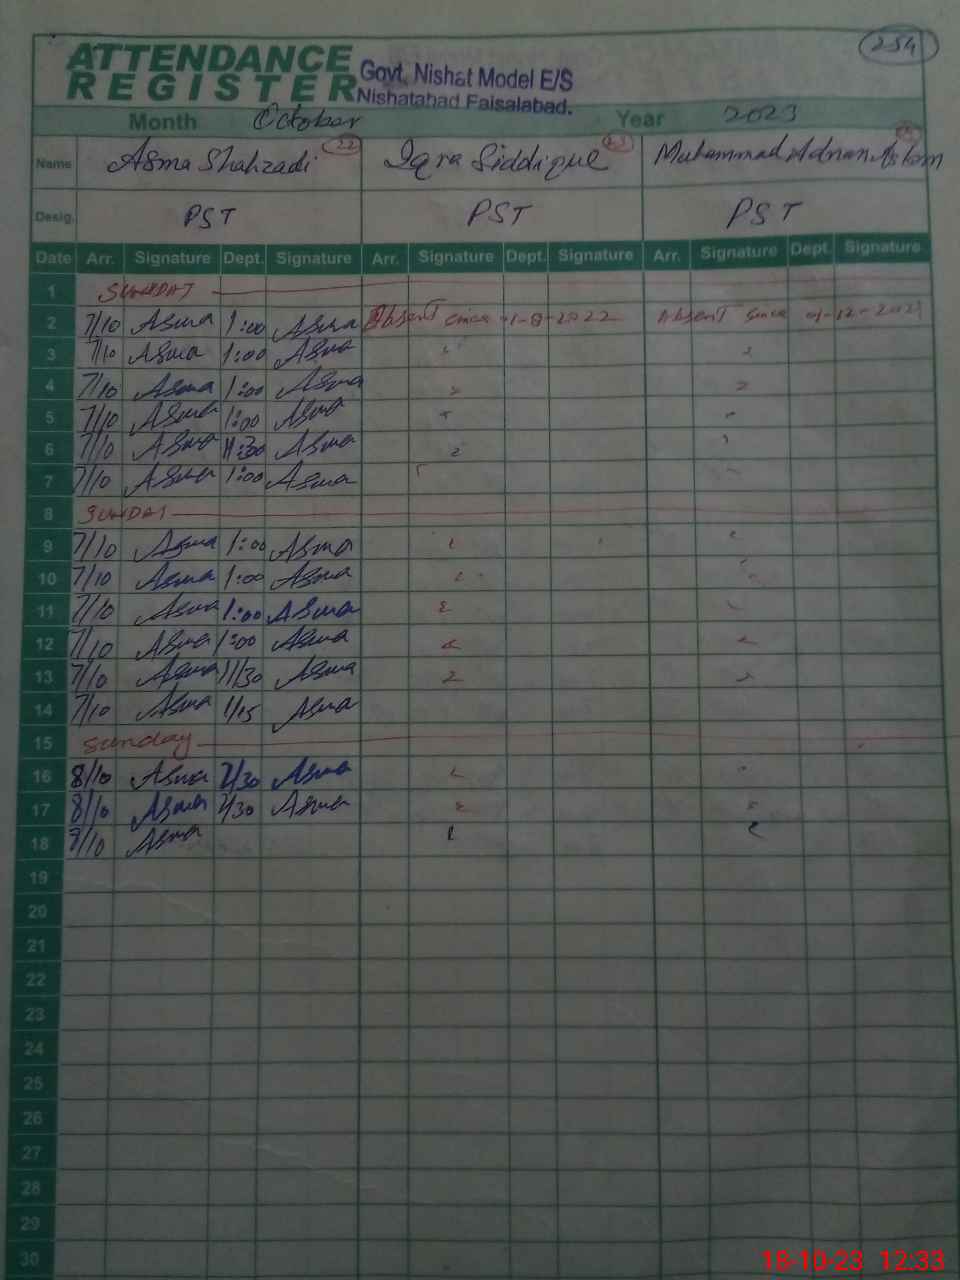 254
ATTENDANCE
REGISTER
Govt. Nishat Model E/S
Nishatabad Faisalabad.
Month October Year 2023
Name Asma Shahzadi 22 Iqra Siddique 23 Muhammad Adnan Aslam
Desig. PST PST PST
Date Arr. Signature Dept. Signature Arr. Signature Dept. Signature Arr. Signature Dept. Signature
1 SUNDAY
2 7/10 Asma 1:00 Asma Absent since 1-8-2022 Absent since 01-12-2021
3 7/10 Asma 1:00 Asma
4 7/10 Asma 1:00 Asma
5 7/10 Asma 1:00 Asma
6 7/10 Asma 11:30 Asma
7 7/10 Asma 1:00 Asma
8 SUNDAY
9 7/10 Asma 1:00 Asma
10 7/10 Asma 1:00 Asma
11 7/10 Asma 1:00 Asma
12 7/10 Asma 1:00 Asma
13 7/10 Asma 11/30 Asma
14 7/10 Asma 1/15 Asma
15 Sunday
16 8/10 Asma 2/30 Asma
17 8/10 Asma 2/30 Asma
18 /10 Asma
19
20
21
22
23
24
25
26
27
28
29
30
18-10-23 12:33